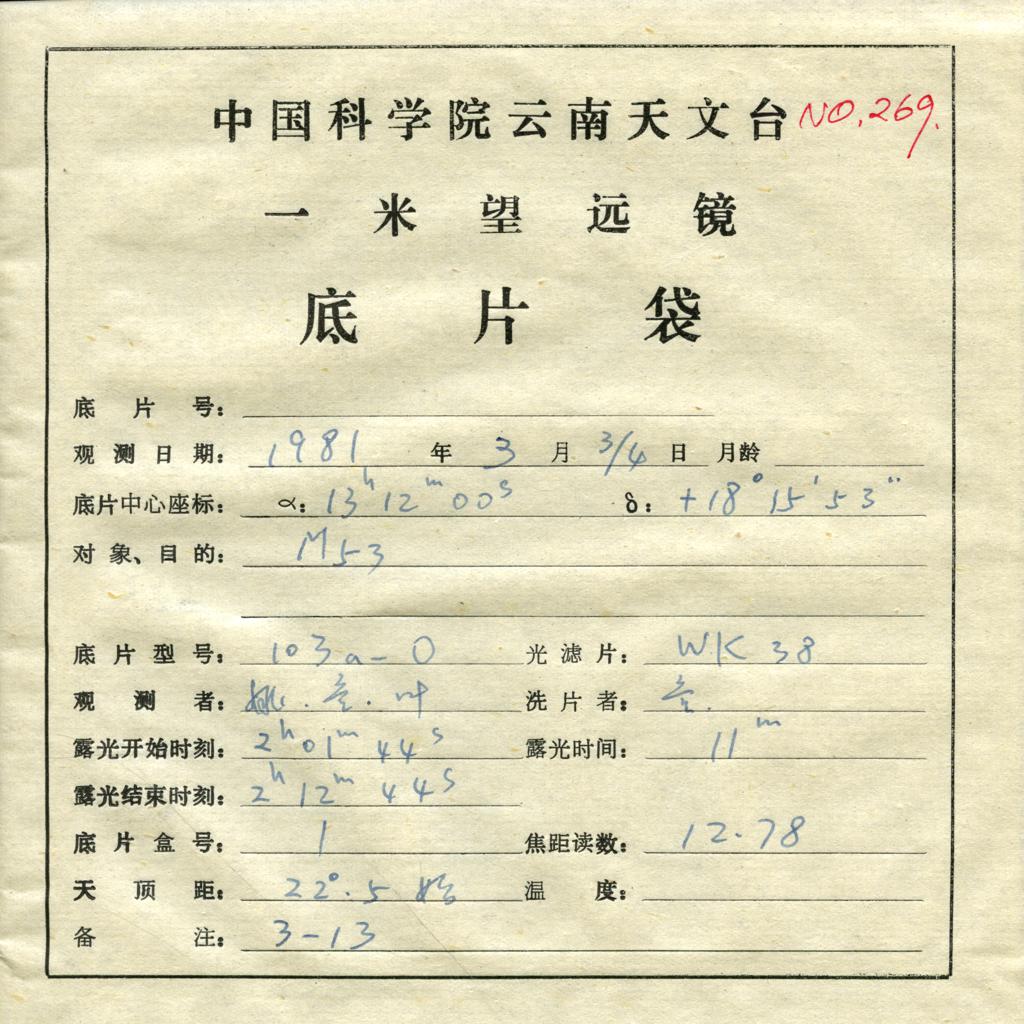 中国科学院云南天文台 NO.269.
一米望远镜
底片袋
底片号：
观测日期： 1981 年 3 月 3/4 日 月龄
底片中心座标： α： 13h 12m 00s δ： +18° 15′ 53″
对象、目的： M53
底片型号： 103a-O 光滤片： WK 38
观测者： 姚. . 叶 洗片者：
露光开始时刻： 2h 01m 44s 露光时间： 11m
露光结束时刻： 2h 12m 44s
底片盒号： 1 焦距读数： 12.78
天顶距： 22°.5 始 温度：
备注： 3-13